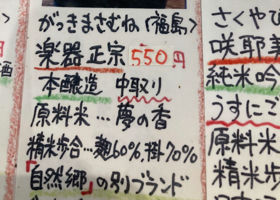 がっきまさむね〈福島〉
楽器正宗 550円
本醸造 中取り
原料米…夢の香
精米歩合…麹60%、掛70%
「自然郷」の別ブランド
酒
さくや
咲耶美
純米吟
うすにご
原料米
精米歩